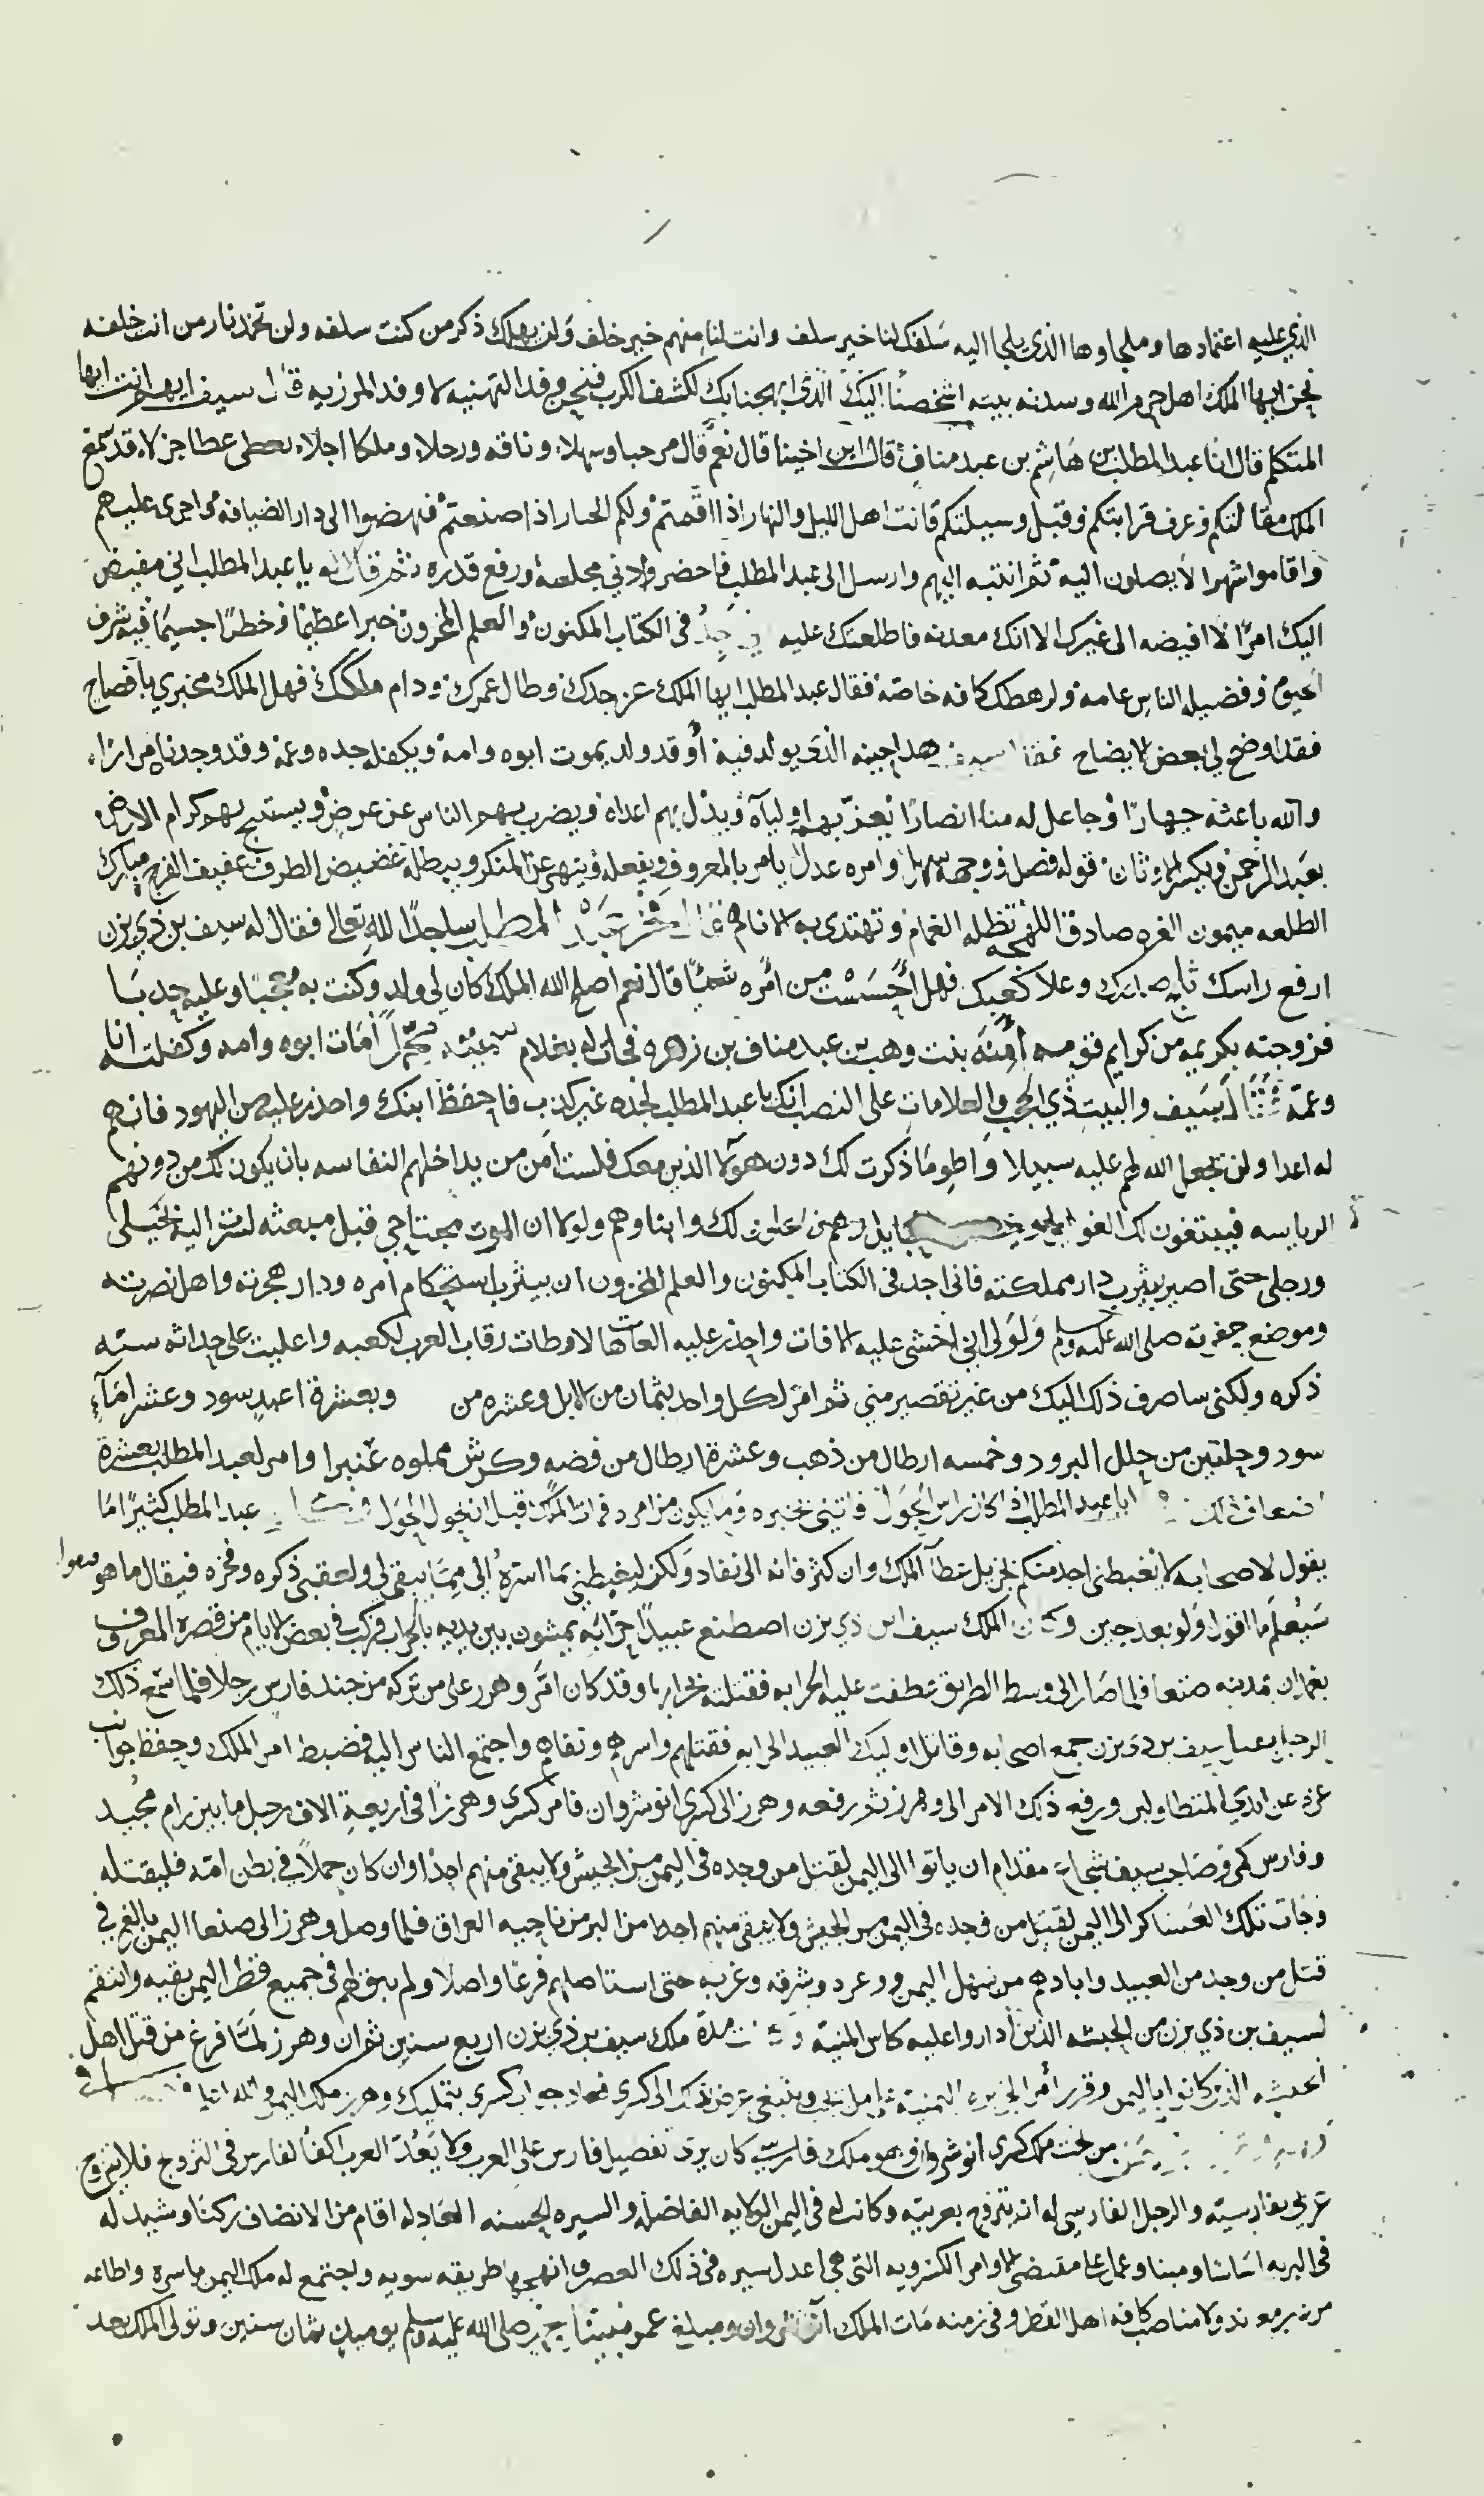 الذي عليه اعتمادها وملجاوها الذي يلجا اليه سلفك لنا خير سلف وانت لنا منهم خير خلف ولن يهلك ذكر من كنت سلفه ولن تخمد نار من انت خلفه
نحن ايها الملك اهل حرم الله وسدنه بيته اشخصنا اليك الذي ابهجنا بك لكشف الكرب فنحن وفد التهنيه لا وفد المرزيه قال سيف ايهم انت ايها
المتكلم قال انا عبد المطلب بن هاشم بن عبد مناف قال ابن اختنا قال نعم قال مرحبا وسهلا وناقه ورحلا وملكا اجلا يعطي عطا جزلا قد سمع
الملك مقالتكم وعرف قرابتكم وقبل وسيلتكم فانت اهل الليل والنهار اذا اقمتم ولكم الحبا اذا صنعتم فنهضوا الى دار الضيافه واجرى عليهم
واقاموا شهرا لا يصلون اليه ثم انتبه اليهم وارسل الى عبد المطلب فاحضر وادني مجلسه ورفع قدره ثم قال له يا عبد المطلب اني مفيض
اليك امرا لا افيضه الى غيرك الا انك معدنه فاطلعتك عليه اني اجد في الكتاب المكنون والعلم المخزون خبرا عظيما وخطرا جسيما فيه شرف
الحيوه وفضيله الناس عامه ولرهطك كافه خاصه فقال عبد المطلب ايها الملك عز جدك وطال عمرك ودام ملكك فهل الملك مخبري بافصاح
فقد اوضح لي بعض الايضاح فقال سيف هذا حينه الذي يولد فيه او قد ولد يموت ابوه وامه ويكفله جده وعمه وقد وجدناه مرارا
والله باعثه جهارا وجاعل له منا انصارا يعز بهم اولياه ويذل بهم اعداه ويضرب بهم الناس عن عرض ويستبيح بهم كرام الارض
يعبد الرحمن ويكسر الاوثان قوله فصل ووجهه سهل وامره عدل يامر بالمعروف ويفعله وينهى عن المنكر ويبطله غضيض الطرف عفيف الفرج مبارك
الطلعه ميمون الغره صادق اللهجه تظله الغمام وتهتدى به الانام قال فخر عبد المطلب ساجدا لله تعالى فقال له سيف بن ذي يزن
ارفع راسك وعلا كعبك فهل احسست من امره شيئا قال نعم اصلح الله الملك كان لي ولد وكنت به معجبا وعليه حدبا
فزوجته بكريمه من كرايم قومه امنه بنت وهب بن عبد مناف بن زهره فجات له بغلام سميته محمدا مات ابوه وامه وكفلته انا
وعمه قال سيف والبيت ذي الحجب والعلامات على النصب انك يا عبد المطلب لجده غير كذب فاحفظ ابنك واحذر عليه من اليهود فانهم
له اعدا ولن يجعل الله لهم عليه سبيلا واطو ما ذكرت لك دون هولا الذين معك فلست امن من يداخلهم النفاسه بان يكون لك من دونهم
الرياسه فيبتغون لك الغوايل وهم فاعلون ذلك وابناوهم ولولا ان الموت مجتاحي قبل مبعثه لسرت اليه بخيلى
ورجلي حتى اصير يثرب دار مملكته فاني اجد في الكتاب المكنون والعلم المخزون ان بيثرب استحكام امره ودار هجرته واهل نصرته
وموضع حفرته صلى الله عليه وسلم ولولى اني اخشى عليه الافات واحذر عليه العاهات لاوطات رقاب العرب كعبه واعليت على حداثه سنه
ذكره ولكنى ساصرف ذلك اليك من غير تقصير مني ثم امر لكل واحد بثمان من الابل وعشره من وبعشرة اعبد سود وعشر امآء
سود وحلتين من حلل البرود وخمسه ارطال من ذهب وعشرة ارطال من فضه وكرش مملوه عنبرا وامر لعبد المطلب بعشرة
اضعاف ذلك يا عبد المطلب اذا كان راس الحول فاتيني بخبره وما يكون من امره فمات الملك قبل ان يحول الحول عبد المطلب كثيرا ما
يقول لاصحابه لا يغبطني احد منكم بجزيل عطآ الملك وان كثر فانه الى نفاد ولكن ليغبطني بما اسره الي مما يبقى لي ولعقبي ذكره وفخره فيقال ما هو
سيعلم ما اقول ولو بعد حين وكان الملك سيف ابن ذي يزن اصطنع عبيدا حرابه يمشون بين يديه بالحراب فركب في بعض الايام من قصره المعروف
بغمدان بمدينه صنعا فلما صار الى وسط الطريق عطفت عليه الحرابه فقتلته بحرابها وقد كان امر وهرز على من تركه من جند فارس رجلا فلما سمع ذلك
الرجل سيف بن ذي يزن جمع اصحابه وقاتل اوليك العبيد الحرابه فقتلهم واسرهم ونفاهم واجتمع الناس اليه فضبط امر الملك وحفظ جوانب
عن ايدي المتطاولين ورفع ذلك الامر الى وهرز ثم رفعه وهرز الى كسرى انوشروان فامر كسرى وهرزا في اربعة الاف رجل ما بين رام مجيد
وفارس كمي وصاحب سيف شجاع مقدام ان ياتوا الى اليمن لقتل من وجده في اليمن من الحبش ولا يبقي منهم احدا وان كان حملا في بطن امه فليقتله
وجات تلك العساكر الى اليمن لقتل من وجده في اليمن من الحبش ولا يبقي منهم احدا من البر من ناحيه العراق فلما وصل وهرز الى صنعا اليمن بالغ في
قتل من وجد من العبيد وابادهم من سهل اليمن ووعره وشرقه وغربه حتى استاصلهم فرعا واصلا ولم يبق لهم في جميع قطر اليمن بقيه وانتقم
لسيف بن ذي يزن من الحبشه الذين اداروا عليه كاس المنيه وكانت مدة ملك سيف بن ذي يزن اربع سنين ثم ان وهرز لما فرغ من قتل اهل
الحبشه الذين كانوا باليمن وقرر امر الجزيره اليمنية عرض ذلك الى كسرى فعاد جواب كسرى بتمليك وهرز ملك اليمن
من تحت ملك كسرى انوشروان وهو ملك فارسي كان يرى تفضيل فارس على العرب ولا يعد العرب اكفا لفارس في التزوج فلا يتزوج
عربي بفارسيه والرجل الفارسي له ان يتزوج بعربيه وكانت له في اليمن الولايه الفاضله والسيره الحسنه العادله اقام من الانصاف ركنا وشيد له
في البريه اساسا ومبنا وعمل على مقتضى الاوامر الكسرويه التي هي اعدل سيره في ذلك العصر وانهجها طريقه سويه واجتمع له ملك اليمن باسره واطاعه
كافه اهل القطر وفي زمنه مات الملك انوشروان ومبلغ عمر نبينا محمد صلى الله عليه وسلم يوميذ ثمان سنين وتولى الملك بعد